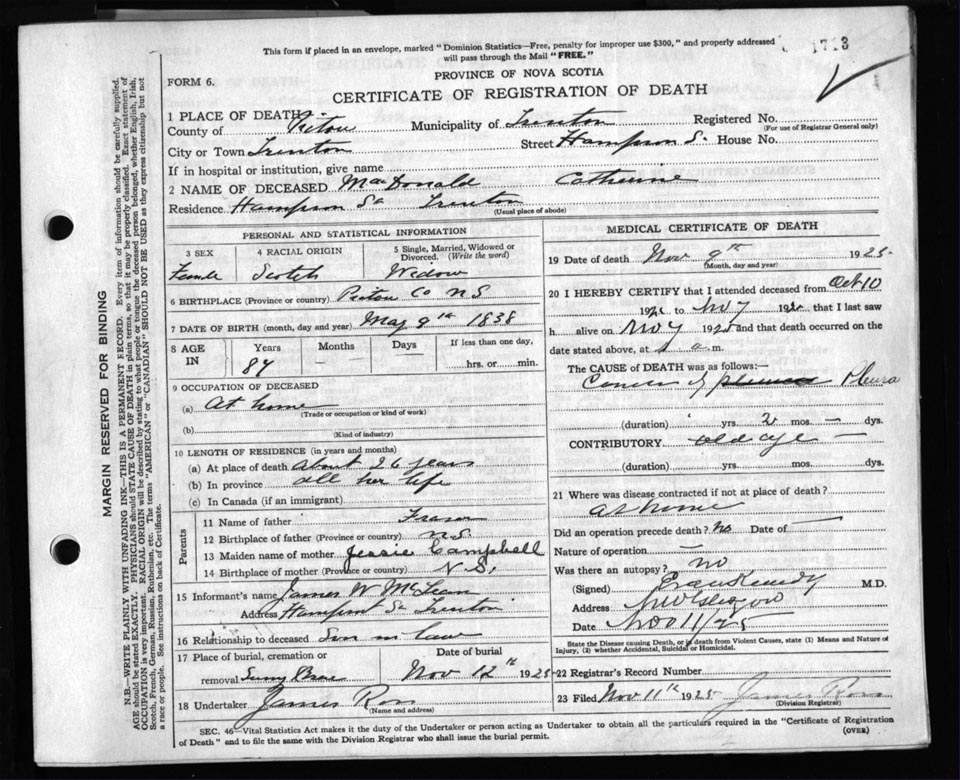 1713
This form if placed in an envelope, marked "Dominion Statistics—Free, penalty for improper use $300," and properly addressed
will pass through the Mail "FREE."
PROVINCE OF NOVA SCOTIA
FORM 6.
CERTIFICATE OF REGISTRATION OF DEATH
1 PLACE OF DEATH
County of Pictou Municipality of Trenton Registered No.
(For use of Registrar General only)
City or Town Trenton Street Hampson S. House No.
If in hospital or institution, give name
2 NAME OF DECEASED MacDonald Catherine
Residence Hampson St Trenton
(Usual place of abode)
PERSONAL AND STATISTICAL INFORMATION
3 SEX 4 RACIAL ORIGIN 5 Single, Married, Widowed or
Divorced. (Write the word)
Female Scotch Widow
6 BIRTHPLACE (Province or country) Pictou Co NS
7 DATE OF BIRTH (month, day and year) May 9th 1838
8 AGE IN Years Months Days If less than one day,
87 — — hrs. or min.
9 OCCUPATION OF DECEASED
(a) At home
(Trade or occupation or kind of work)
(b)
(Kind of industry)
10 LENGTH OF RESIDENCE (in years and months)
(a) At place of death About 26 years
(b) In province all her life
(c) In Canada (if an immigrant)
Parents
11 Name of father Fraser
12 Birthplace of father (Province or country) N.S.
13 Maiden name of mother Jessie Campbell
14 Birthplace of mother (Province or country) N.S.
15 Informant's name James W McLean
Address Hampson St Trenton
16 Relationship to deceased Son in law
17 Place of burial, cremation or Date of burial
removal Nov 12th 1925
18 Undertaker James Ross
(Name and address)
MEDICAL CERTIFICATE OF DEATH
19 Date of death Nov 9th 1925
(Month, day and year)
20 I HEREBY CERTIFY that I attended deceased from Oct 10
1925 to Nov 7 1925 that I last saw
h alive on Nov 7 1925 and that death occurred on the
date stated above, at a.m.
The CAUSE of DEATH was as follows:—
Cancer of Pleura
(duration) yrs. 2 mos. — dys.
CONTRIBUTORY old age —
(duration) yrs. mos. dys.
21 Where was disease contracted if not at place of death?
at home
Did an operation precede death? No Date of —
Nature of operation —
Was there an autopsy? no
(Signed) M.D.
Address New Glasgow
Date Nov 11/25
State the Disease causing Death, or in death from Violent Causes, state (1) Means and Nature of
Injury, (2) whether Accidental, Suicidal or Homicidal.
22 Registrar's Record Number
23 Filed Nov 11th 1925 James Ross
(Division Registrar)
SEC. 46—Vital Statistics Act makes it the duty of the Undertaker or person acting as Undertaker to obtain all the particulars required in the "Certificate of Registration
of Death" and to file the same with the Division Registrar who shall issue the burial permit.
(OVER)
MARGIN RESERVED FOR BINDING
N.B.—WRITE PLAINLY WITH UNFADING INK—THIS IS A PERMANENT RECORD. Every item of information should be carefully supplied.
AGE should be stated EXACTLY. PHYSICIANS should STATE CAUSE OF DEATH in plain terms, so that it may be properly classified. Exact statement of
OCCUPATION is very important. RACIAL ORIGIN will be described by stating to what people or tongue the deceased person belonged, whether English, Irish,
Scotch, French, German, Russian, Ruthenian, etc. The terms "AMERICAN" or "CANADIAN" SHOULD NOT BE USED as they express citizenship but not
a race or people. See instructions on back of Certificate.